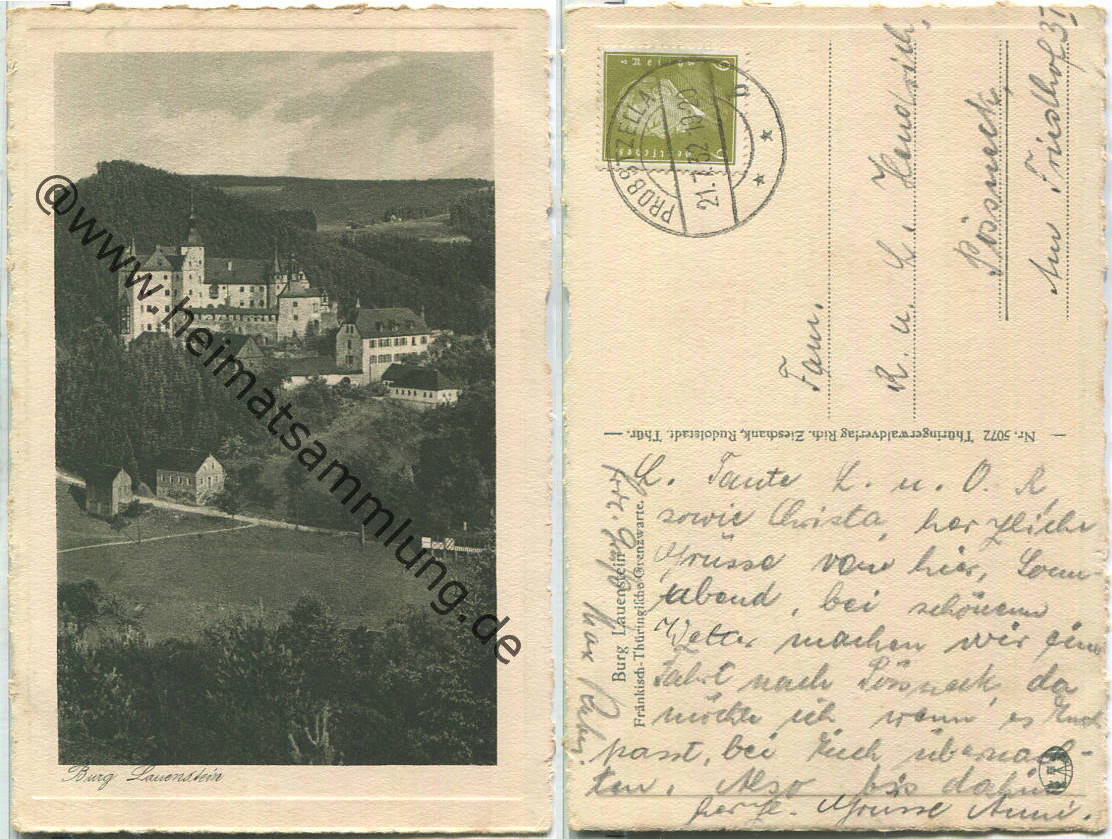 @www.heimatsammlung.de
Burg Lauenstein
6
Deutsches
6
PROBSTZELLA
21.7.32.19-20
Fam.
R. u. L. Hendrich,
Pössneck,
Am Friedhof 31
Nr. 5072 Thüringerwaldverlag Rich. Zieschank, Rudolstadt, Thür.
Burg Lauenstein
Fränkisch-Thüringische Grenzwarte.
L. Tante L. u. O. R
sowie Christa, herzliche
Grüsse von hier, Sonn-
abend, bei schönem
Wetter machen wir eine
Fahrt nach Pössneck, da
möchte ich wenn es Euch
passt, bei Euch übernach-
ten. Also bis dahin
herz. Grüsse Anni.
Max